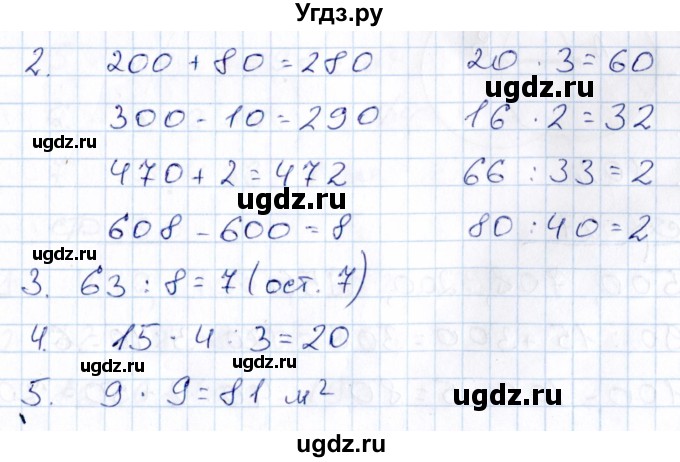 Угдз.ру
2. 200 + 80 = 280 20 · 3 = 60
ugdz.ru ugdz.ru
300 - 10 = 290 16 · 2 = 32
ugdz.ru
470 + 2 = 472 66 : 33 = 2
ugdz.ru
608 - 600 = 8 80 : 40 = 2
ugdz.ru ugdz.ru
3. 63 : 8 = 7 (ост. 7)
4. 15 · 4 : 3 = 20
ugdz.ru ugdz.ru
5. 9 · 9 = 81 м²
ugdz.ru
ugdz.ru